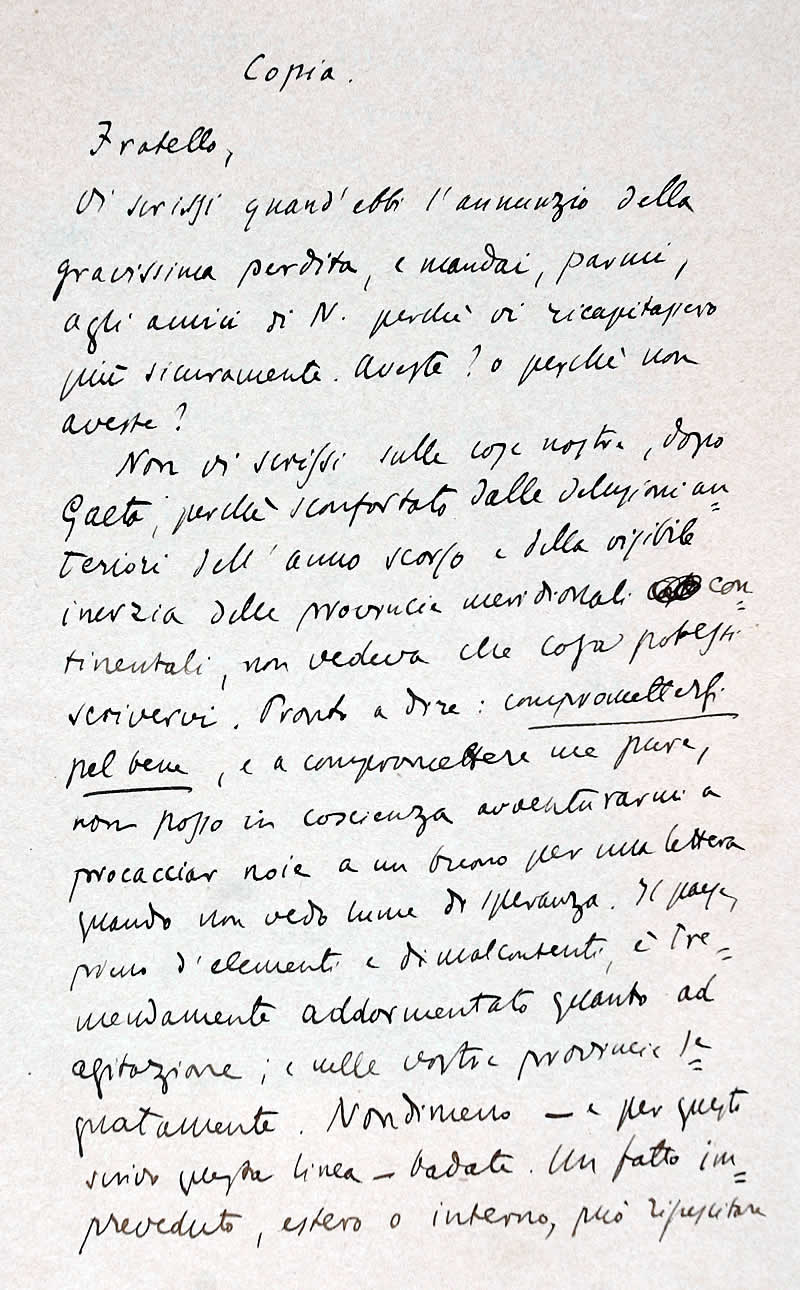 Copia.
Fratello,
Vi scrissi quand'ebbi l'annunzio della
gravissima perdita, e mandai, parmi,
agli amici di N. perchè vi ricapitassero
più sicuramente. Aveste? o perchè non
aveste?
Non vi scrissi sulle cose nostre, dopo
Gaeta, perchè sconfortato dalle delusioni an=
teriori dell'anno scorso e della visibile
inerzia delle provincie meridionali con=
tinentali, non vedeva che cosa potessi
scrivervi. Pronto a dire: comprometterfi
pel bene, e a compromettere me pure,
non posso in coscienza avventurarmi a
procacciar noie a un buono per una lettera
quando non vedo lume di speranza. Il paese,
pieno d'elementi e di malcontenti, è tre=
mendamente addormentato quanto ad
agitazione; e nelle vostre provincie se=
gnatamente. Nondimeno — e per questo
scrivo questa linea — badate. Un fatto im=
preveduto, estero o interno, può risuscitare